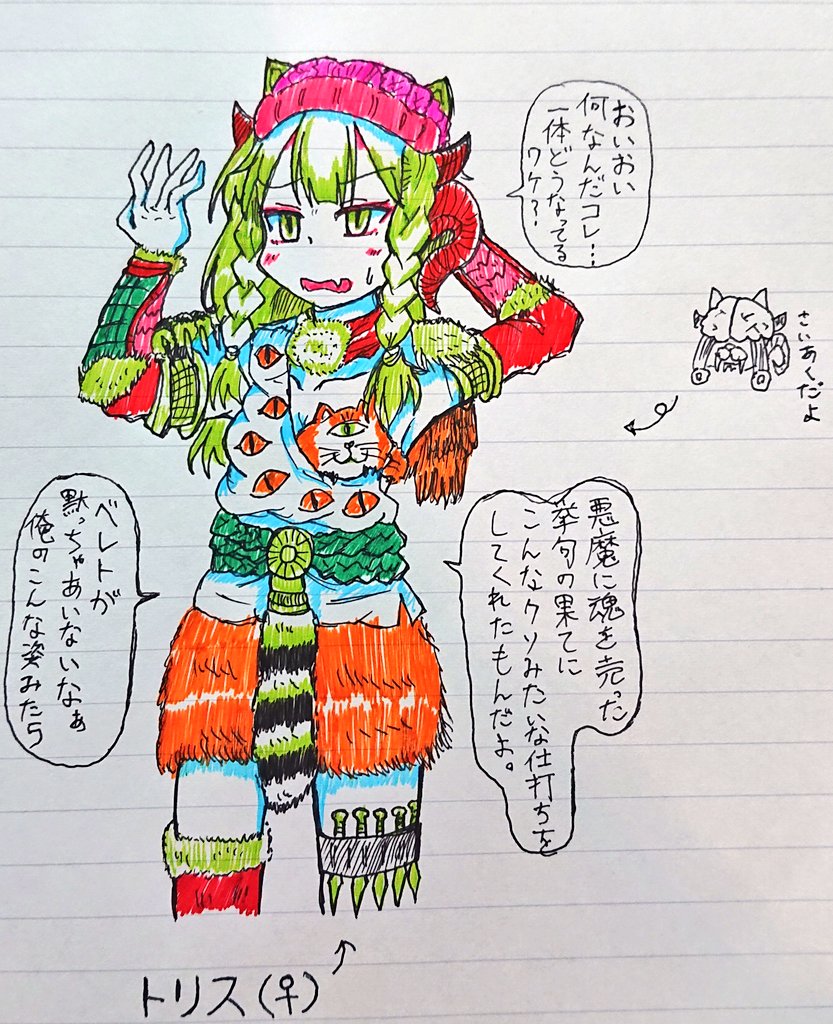 おいおい
何なんだコレ…
一体どうなってる
ワケ?
さいあくだよ
悪魔に魂を売った
挙句の果てに
こんなクソみたいな仕打ちを
してくれたもんだよ。
ベレトが
黙っちゃあいないなぁ
俺のこんな姿みたら
トリス(♀)